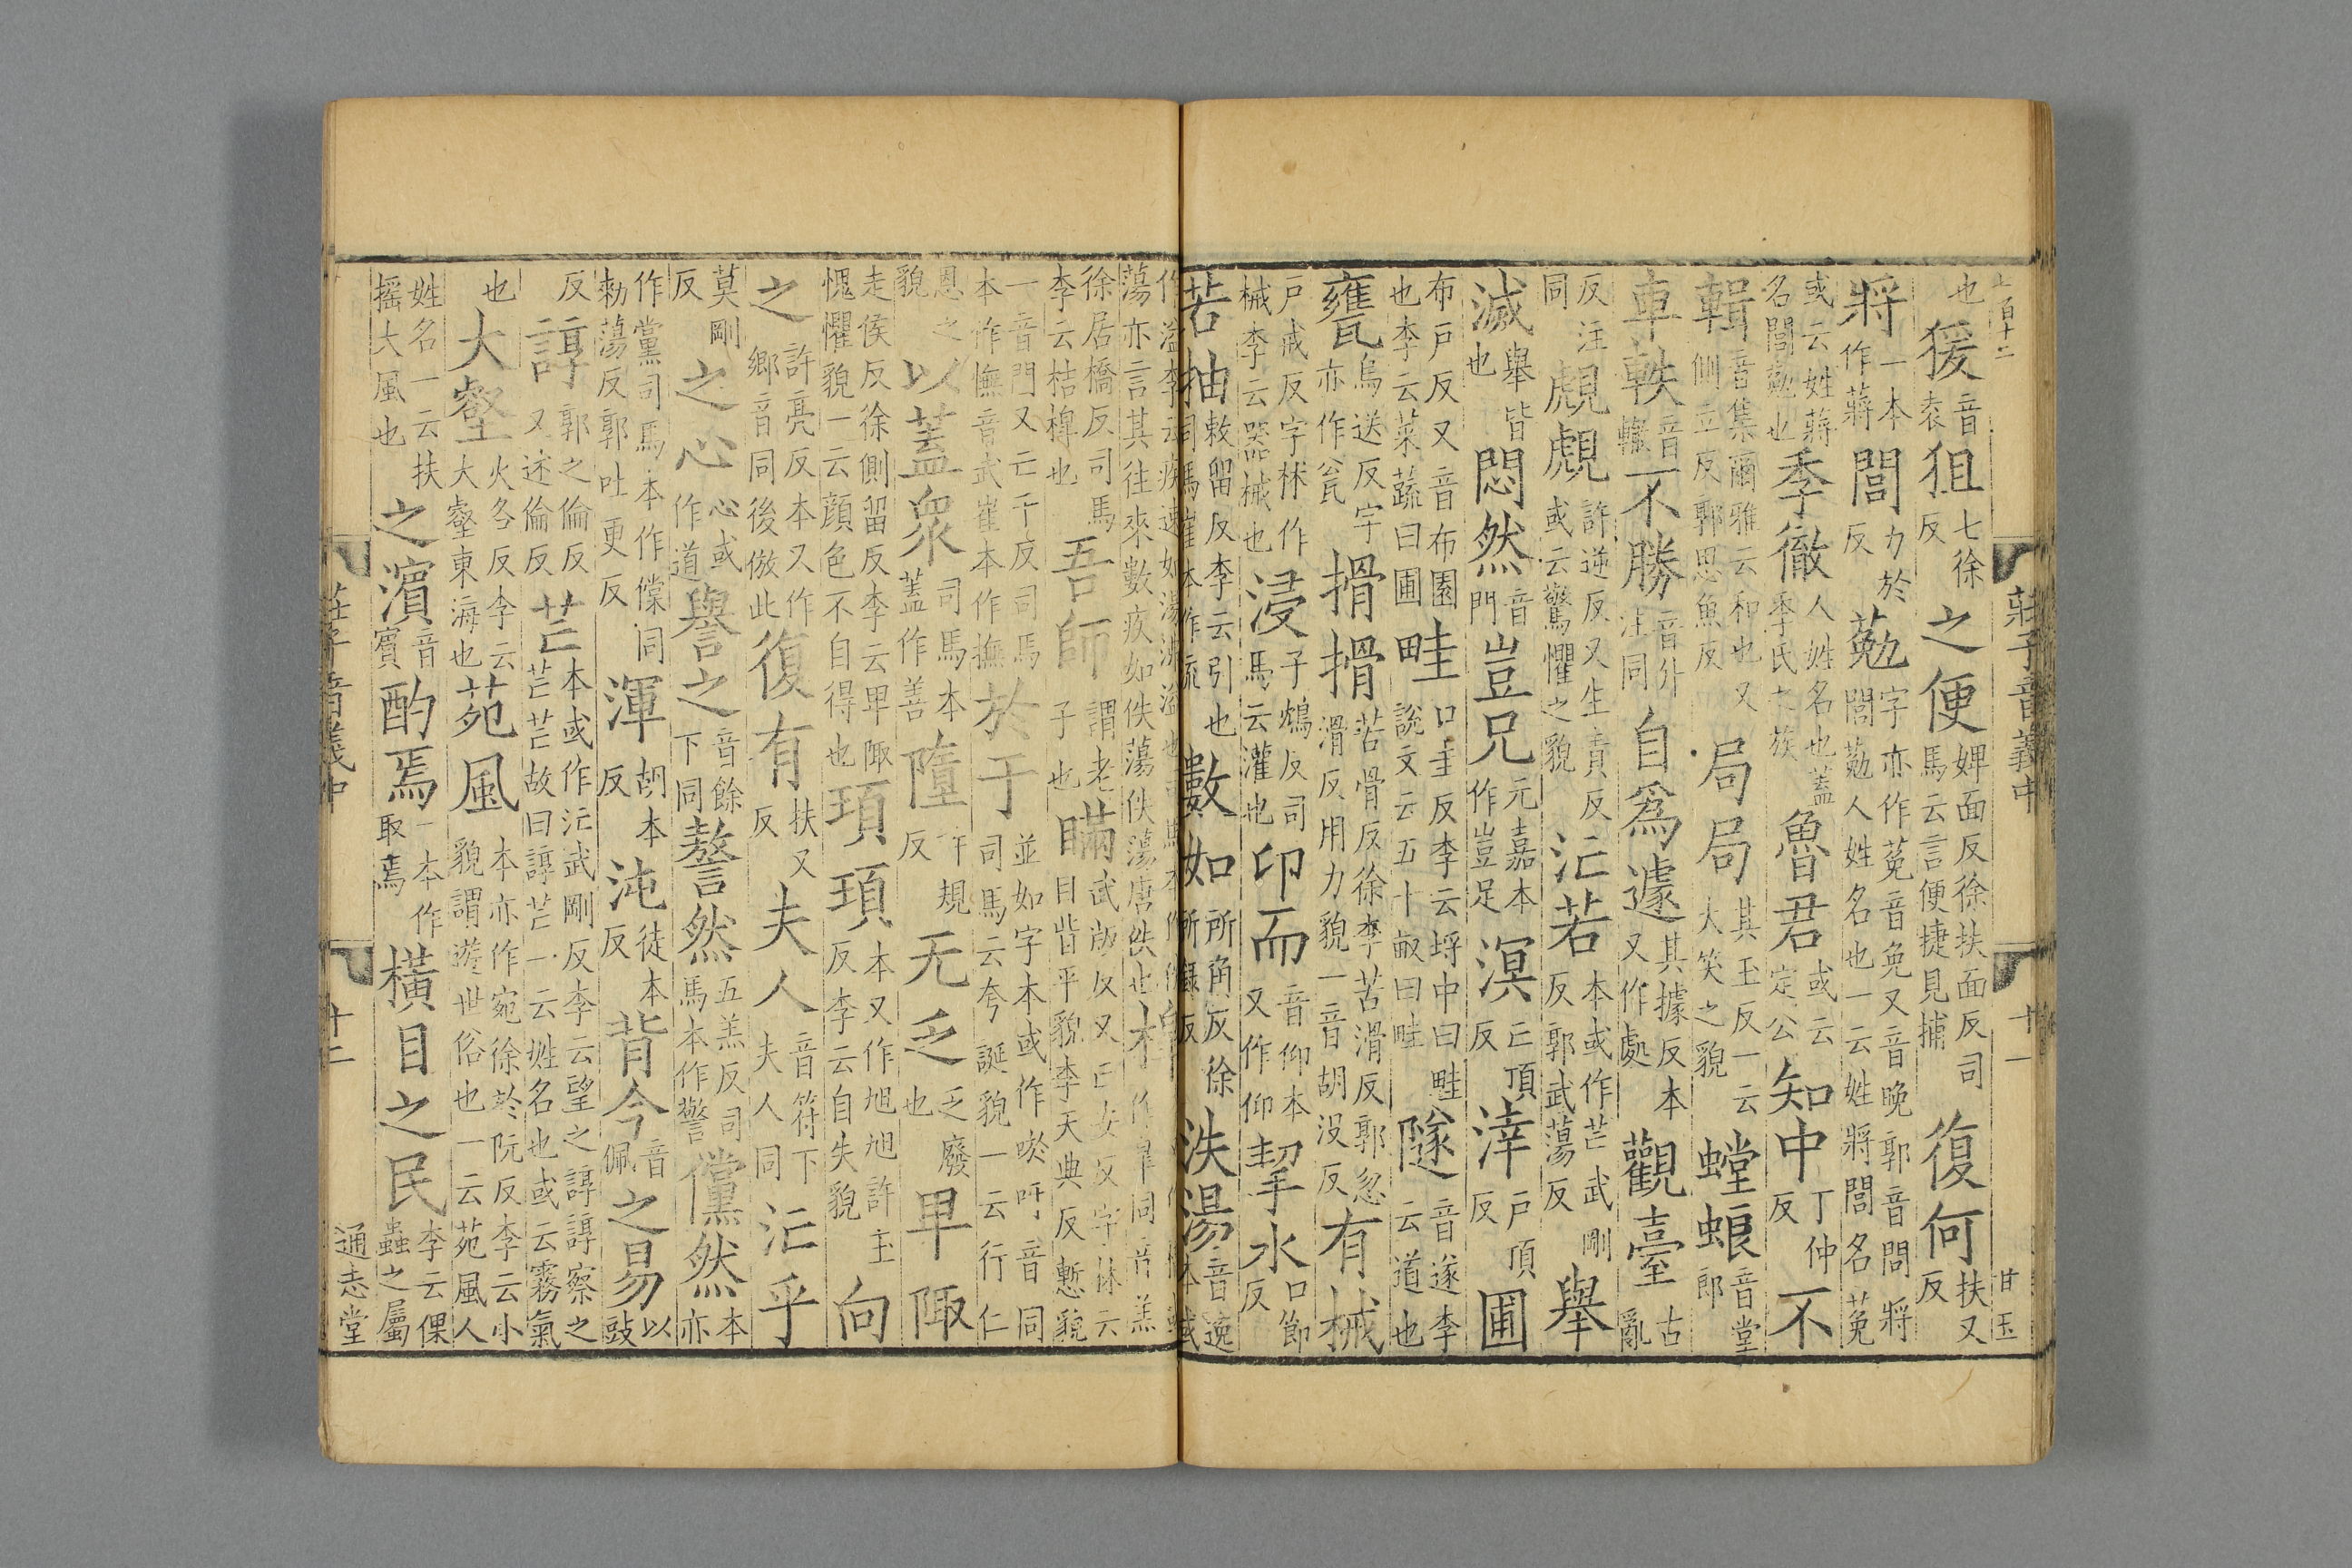 上百十二
莊子音義中　十一　甘玉
也猨音袁狙七徐反之便婢面反徐扶面反司馬云言便捷見捕復何扶又反
將一本作蔣閭力於反葂字亦作莬音免又音晚郭音問將閭葂人姓名也一云姓將閭名莬
或云姓蔣名閭葂也季徹人姓名也蓋季氏之族魯君或云定公知中丁仲反不
輯音集爾雅云和也又側立反郭思魚反局局其玉反一云大笑之貌螳蜋音堂郎
車軼音轍不勝音升注同自爲遽其據反本又作處觀臺古亂
反注同覤覤許逆反又生責反或云驚懼之貌汒若本或作芒武剛反郭武蕩反舉
滅舉皆也悶然音門豈兄元嘉本作豈足溟亡頂反涬戶頂反圃
布戶反又音布園也李云菜蔬曰圃畦口圭反李云埒中曰畦說文云五十畝曰畦隧音遂李云道也
甕烏送反字亦作瓮搰搰苦骨反徐李苦滑反郭忽滑反用力貌一音胡没反有械
戶戒反字林作械李云器械也浸子鴆反司馬云灌也卬而音仰本又作仰挈水口節反
若抽敕留反李云引也司馬崔本作流數如所角反徐所錄反泆湯音逸本或
作溢李云疾速如湯沸溢也蕩亦言其往來數疾如佚蕩佚蕩唐佚也
徐居橋反司馬李云桔槔也吾師謂老子也瞞武版反又亡安反字林云目眥平貌李天典反慙貌
一音門又亡干反司馬本作憮音武崔本作撫於于並如字本或作唹吁音同司馬云夸誕貌一云行仁
恩之貌以蓋衆司馬本蓋作善墮許規反无乏乏廢也卑陬
走侯反徐側留反李云卑陬愧懼貌一云顔色不自得也頊頊本又作旭旭許玉反李云自失貌向
之許亮反本又作鄉音同後倣此復有扶又反夫人音符下夫人同汒乎
莫剛反之心心或作道譽之音餘下同謷然五羔反司馬本作警儻然本亦
作黨司馬本作儻同勑蕩反郭吐更反渾胡本反沌徒本反背今音佩之易以豉
反諄郭之倫反又述倫反芒本或作汒武剛反李云望之諄諄察之芒芒故曰諄芒一云姓名也或云霧氣
也大壑火各反李云大壑東海也苑風本亦作宛徐於阮反李云小貌謂遊世俗也一云苑風人
姓名一云扶摇大風也之濱音賓酌焉一本作取焉橫目之民李云倮蟲之屬
莊子音義中　十二　通志堂